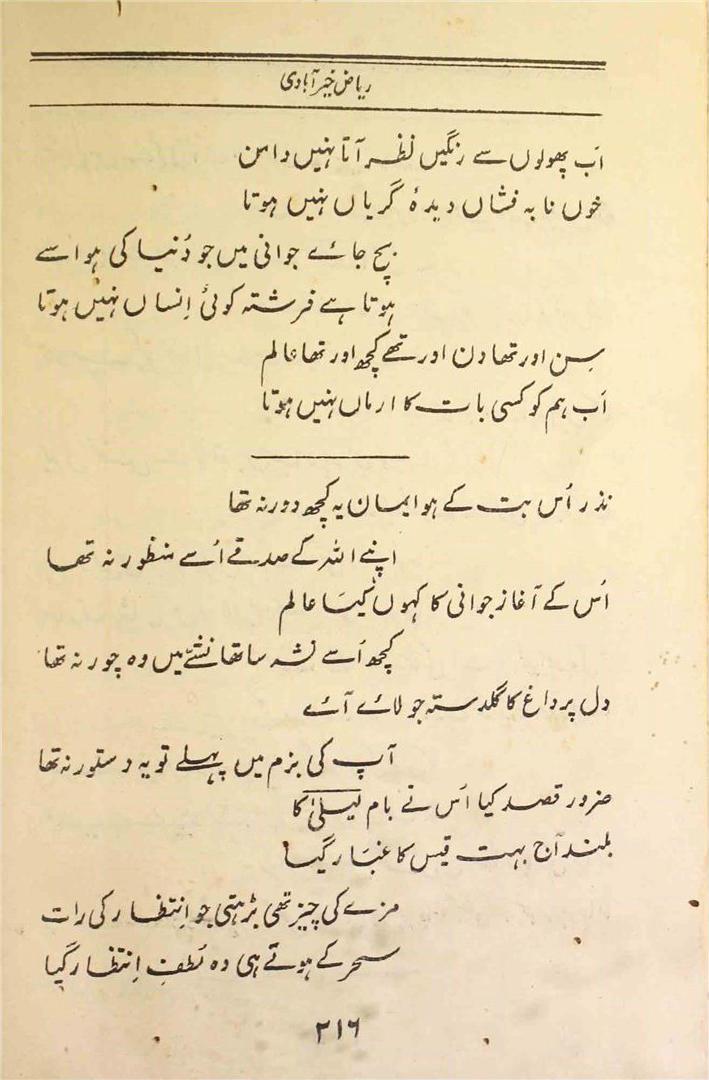 ریاض خیرآبادی
اَب پھولوں سے رنگیں نظر آتا نہیں دامن
خوں نابہ فشاں دیدۂ گریاں نہیں ہوتا
بچ جائے جوانی میں جو دُنیا کی ہوا سے
ہوتا ہے فرشتہ کوئی اِنساں نہیں ہوتا
سِن اور تھا دن اور تھے کچھ اور تھا عالم
اَب ہم کو کسی بات کا ارماں نہیں ہوتا
نذر اُس بت کے ہو ایمان یہ کچھ دور نہ تھا
اپنے اللہ کے صدقے اُسے منظور نہ تھا
اُس کے آغاز جوانی کا کہوں کیسَا عالم
کچھ اُسے نشہ سا تھا نشّے میں وہ چور نہ تھا
دل پر داغ کا گلدستہ جو لائے آئے
آپ کی بزم میں پہلے تو یہ دستور نہ تھا
ضرور قصد کیا اُس نے بام لیلیٰ کا
بلند آج بہت قیس کا غبَار گیا
مزے کی چیز تھی بڑھتی جو اِنتظار کی رات
سحر کے ہوتے ہی وہ لُطفِ اِنتظار گیا
۲۱۶